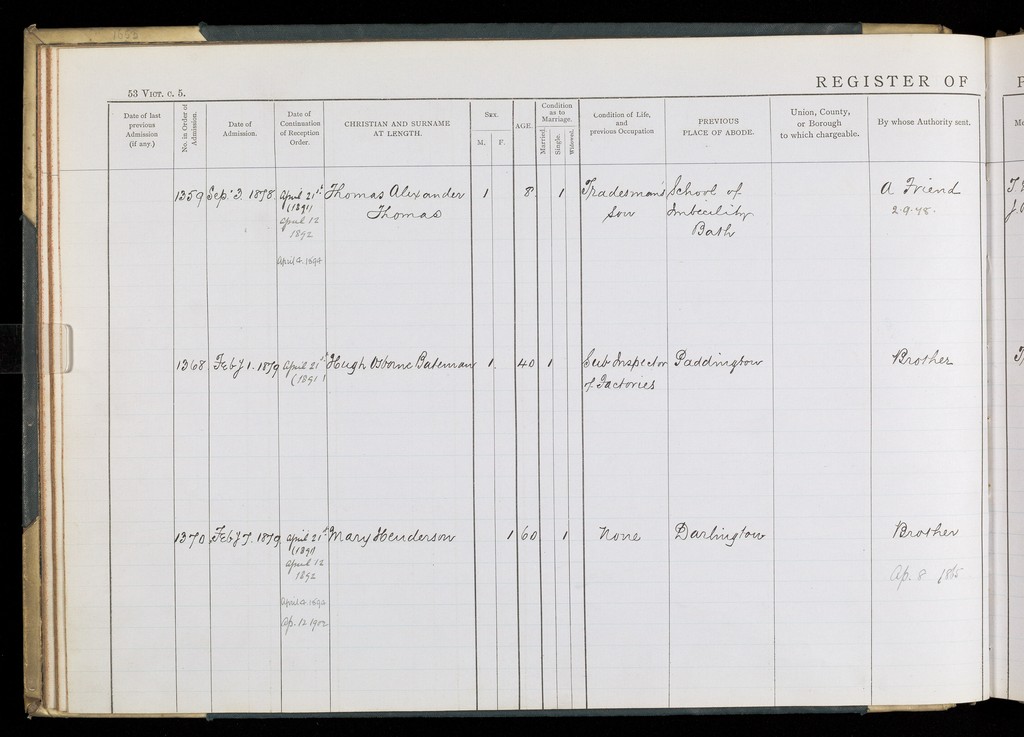 53 Vict. c. 5.
REGISTER OF
Date of last previous Admission (if any.)
No. in Order of Admission.
Date of Admission.
Date of Continuation of Reception Order.
CHRISTIAN AND SURNAME AT LENGTH.
Sex.
M. F.
AGE.
Condition as to Marriage.
Married. Single. Widowed.
Condition of Life, and previous Occupation
PREVIOUS PLACE OF ABODE.
Union, County, or Borough to which chargeable.
By whose Authority sent.
1359 Sep. 3. 1878. April 21st Thomas Alexander 1 8. 1 Tradesman's School of A Friend
(1891) Thomas Son Imbecility 2.9.78.
April 12 Bath
1892
April 4. 1894
1368. Feby 1. 1879 April 21st Hugh Osborne Bateman 1. 40 1 Sub Inspector Paddington Brother
(1891) of Factories
1370 Feby 7. 1879 April 21st Mary Henderson 1 60 1 None Darlington Brother
(1891)
April 12
1892 Ap. 8
April 4 1894
Ap. 12 1902